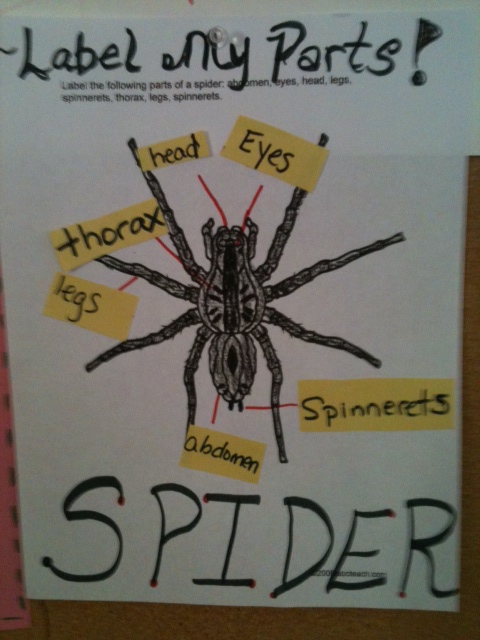 ~Label My Parts!
Label the following parts of a spider: abdomen, eyes, head, legs,
spinnerets, thorax, legs, spinnerets.
head
Eyes
thorax
legs
Spinnerets
abdomen
SPIDER